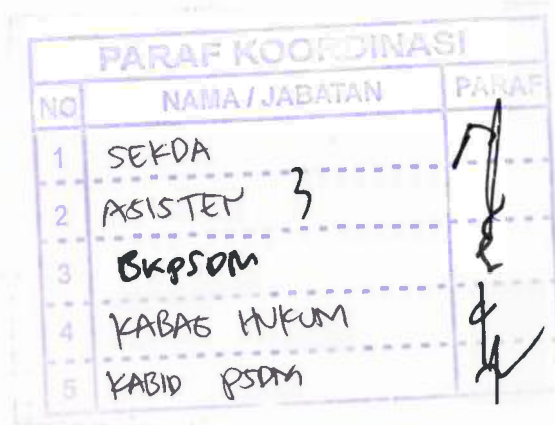 PARAF KOORDINASI
NO NAMA / JABATAN PARAF
1 SEKDA
2 ASISTEN 3
3 BKPSDM
4 KABAG HUKUM
5 KABID PSDM